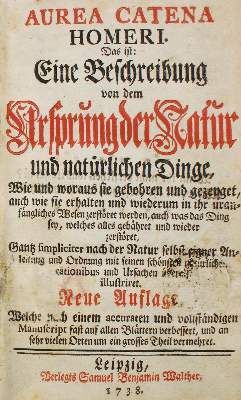 AUREA CATENA
HOMERI.
Das ist:
Eine Beschreibung
von dem
Ursprung der Natur
und natürlichen Dingen,
Wie und woraus sie gebohren und gezeuget,
auch wie sie erhalten und wiederum in ihr uran-
fängliches Wesen zerstöret werden, auch was das Ding
sey, welches alles gebähret und wieder
zerstöret,
Gantz simpliciter nach der Natur selbst eigner An-
leitung und Ordnung mit seinen schönsten natürlichen
rationibus und Ursachen überall
illustriret.
Neue Auflage
Welche nach einem accuraten und vollständigen
Manuscript fast auf allen Blättern verbessert, und an
sehr vielen Orten um ein grosses Theil vermehret.
Leipzig,
Verlegts Samuel Benjamin Walther,
1738.